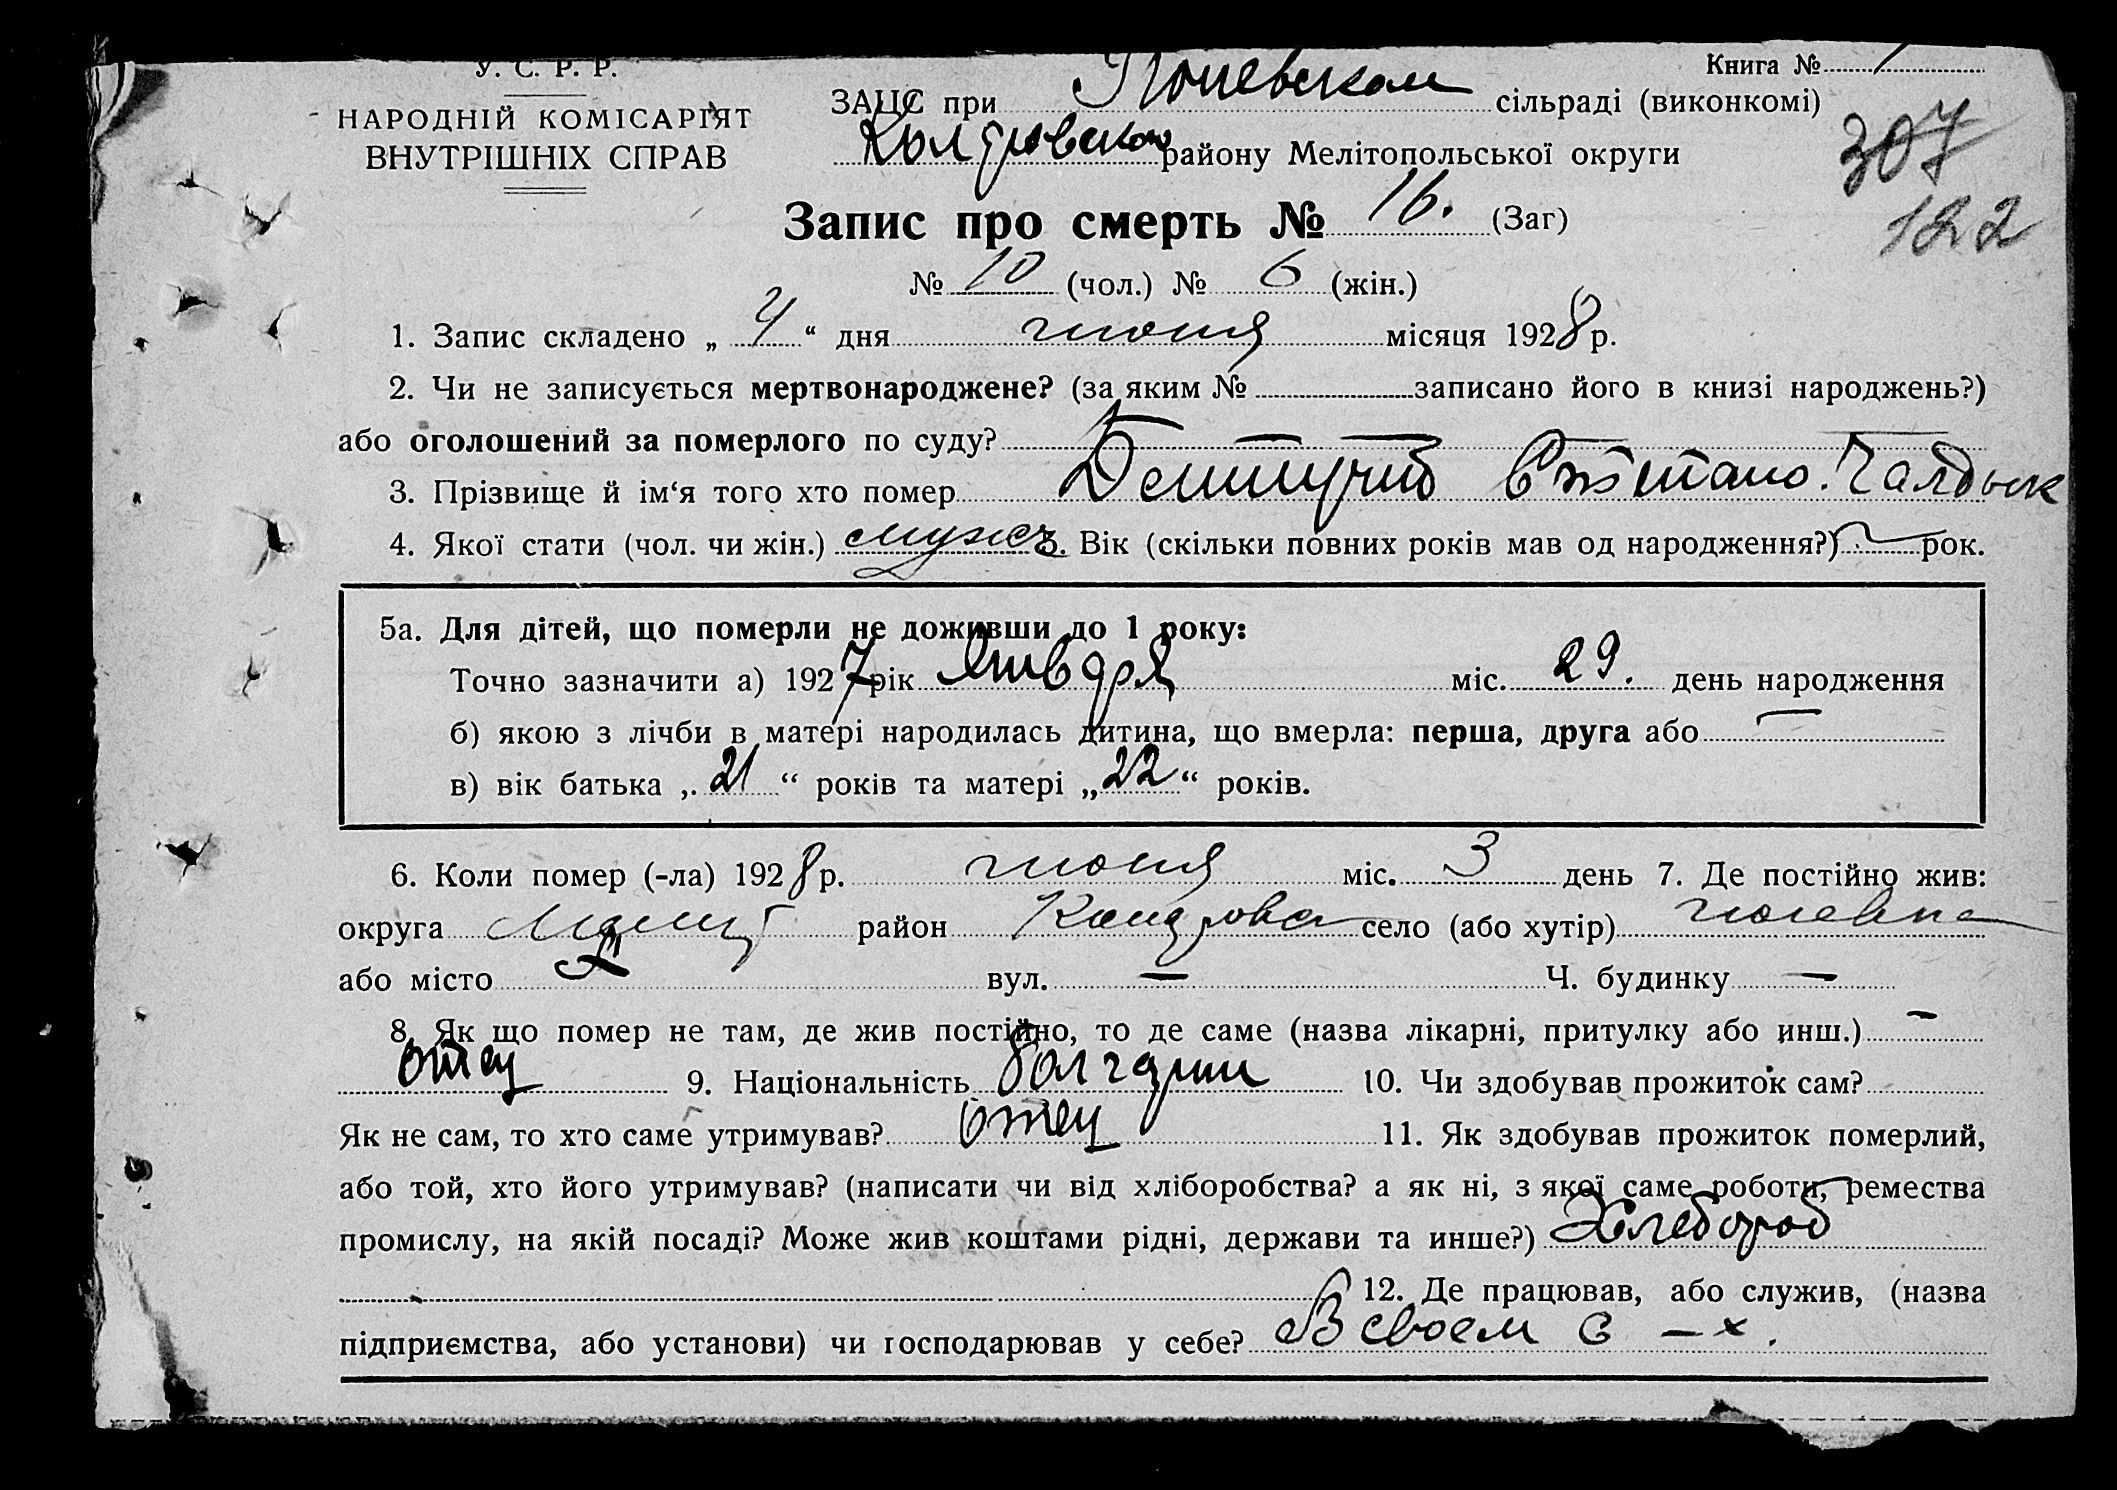 У. С. Р. Р.
НАРОДНІЙ КОМІСАРІЯТ
ВНУТРІШНІХ СПРАВ
Книга №
ЗАЦС при сільраді (виконкомі)
району Мелітопольської округи
307
122
Запис про смерть № 16. (Заг)
№ 10 (чол.) № 6 (жін.)
1. Запис складено „ 4 “ дня июня місяця 1928 р.
2. Чи не записується мертвонароджене? (за яким № записано його в книзі народжень?)
або оголошений за померлого по суду?
3. Прізвище й ім‘я того хто помер
4. Якої стати (чол. чи жін.) мужск 5. Вік (скільки повних років мав од народження?) рок.
5а. Для дітей, що померли не доживши до 1 року:
Точно зазначити а) 1927 рік Января міс. 29. день народження
б) якою з лічби в матері народилась дитина, що вмерла: перша, друга або —
в) вік батька „ 21 “ років та матері „ 22 “ років.
6. Коли помер (-ла) 1928 р. июня міс. 3 день 7. Де постійно жив:
округа район село (або хутір)
або місто вул. — Ч. будинку —
8. Як що помер не там, де жив постійно, то де саме (назва лікарні, притулку або инш.) —
отец 9. Національність болгарин 10. Чи здобував прожиток сам?
Як не сам, то хто саме утримував? отец 11. Як здобував прожиток померлий,
або той, хто його утримував? (написати чи від хліборобства? а як ні, з якої саме роботи, ремества
промислу, на якій посаді? Може жив коштами рідні, держави та инше?) Хлебороб
12. Де працював, або служив, (назва
підприємства, або установи) чи господарював у себе? В своем с-х.